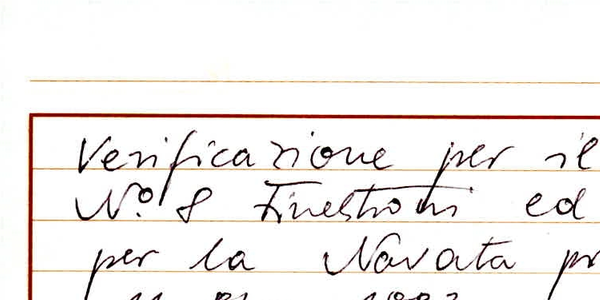 Verificazione per il
N.º 8 Finestroni ed
per la Navata